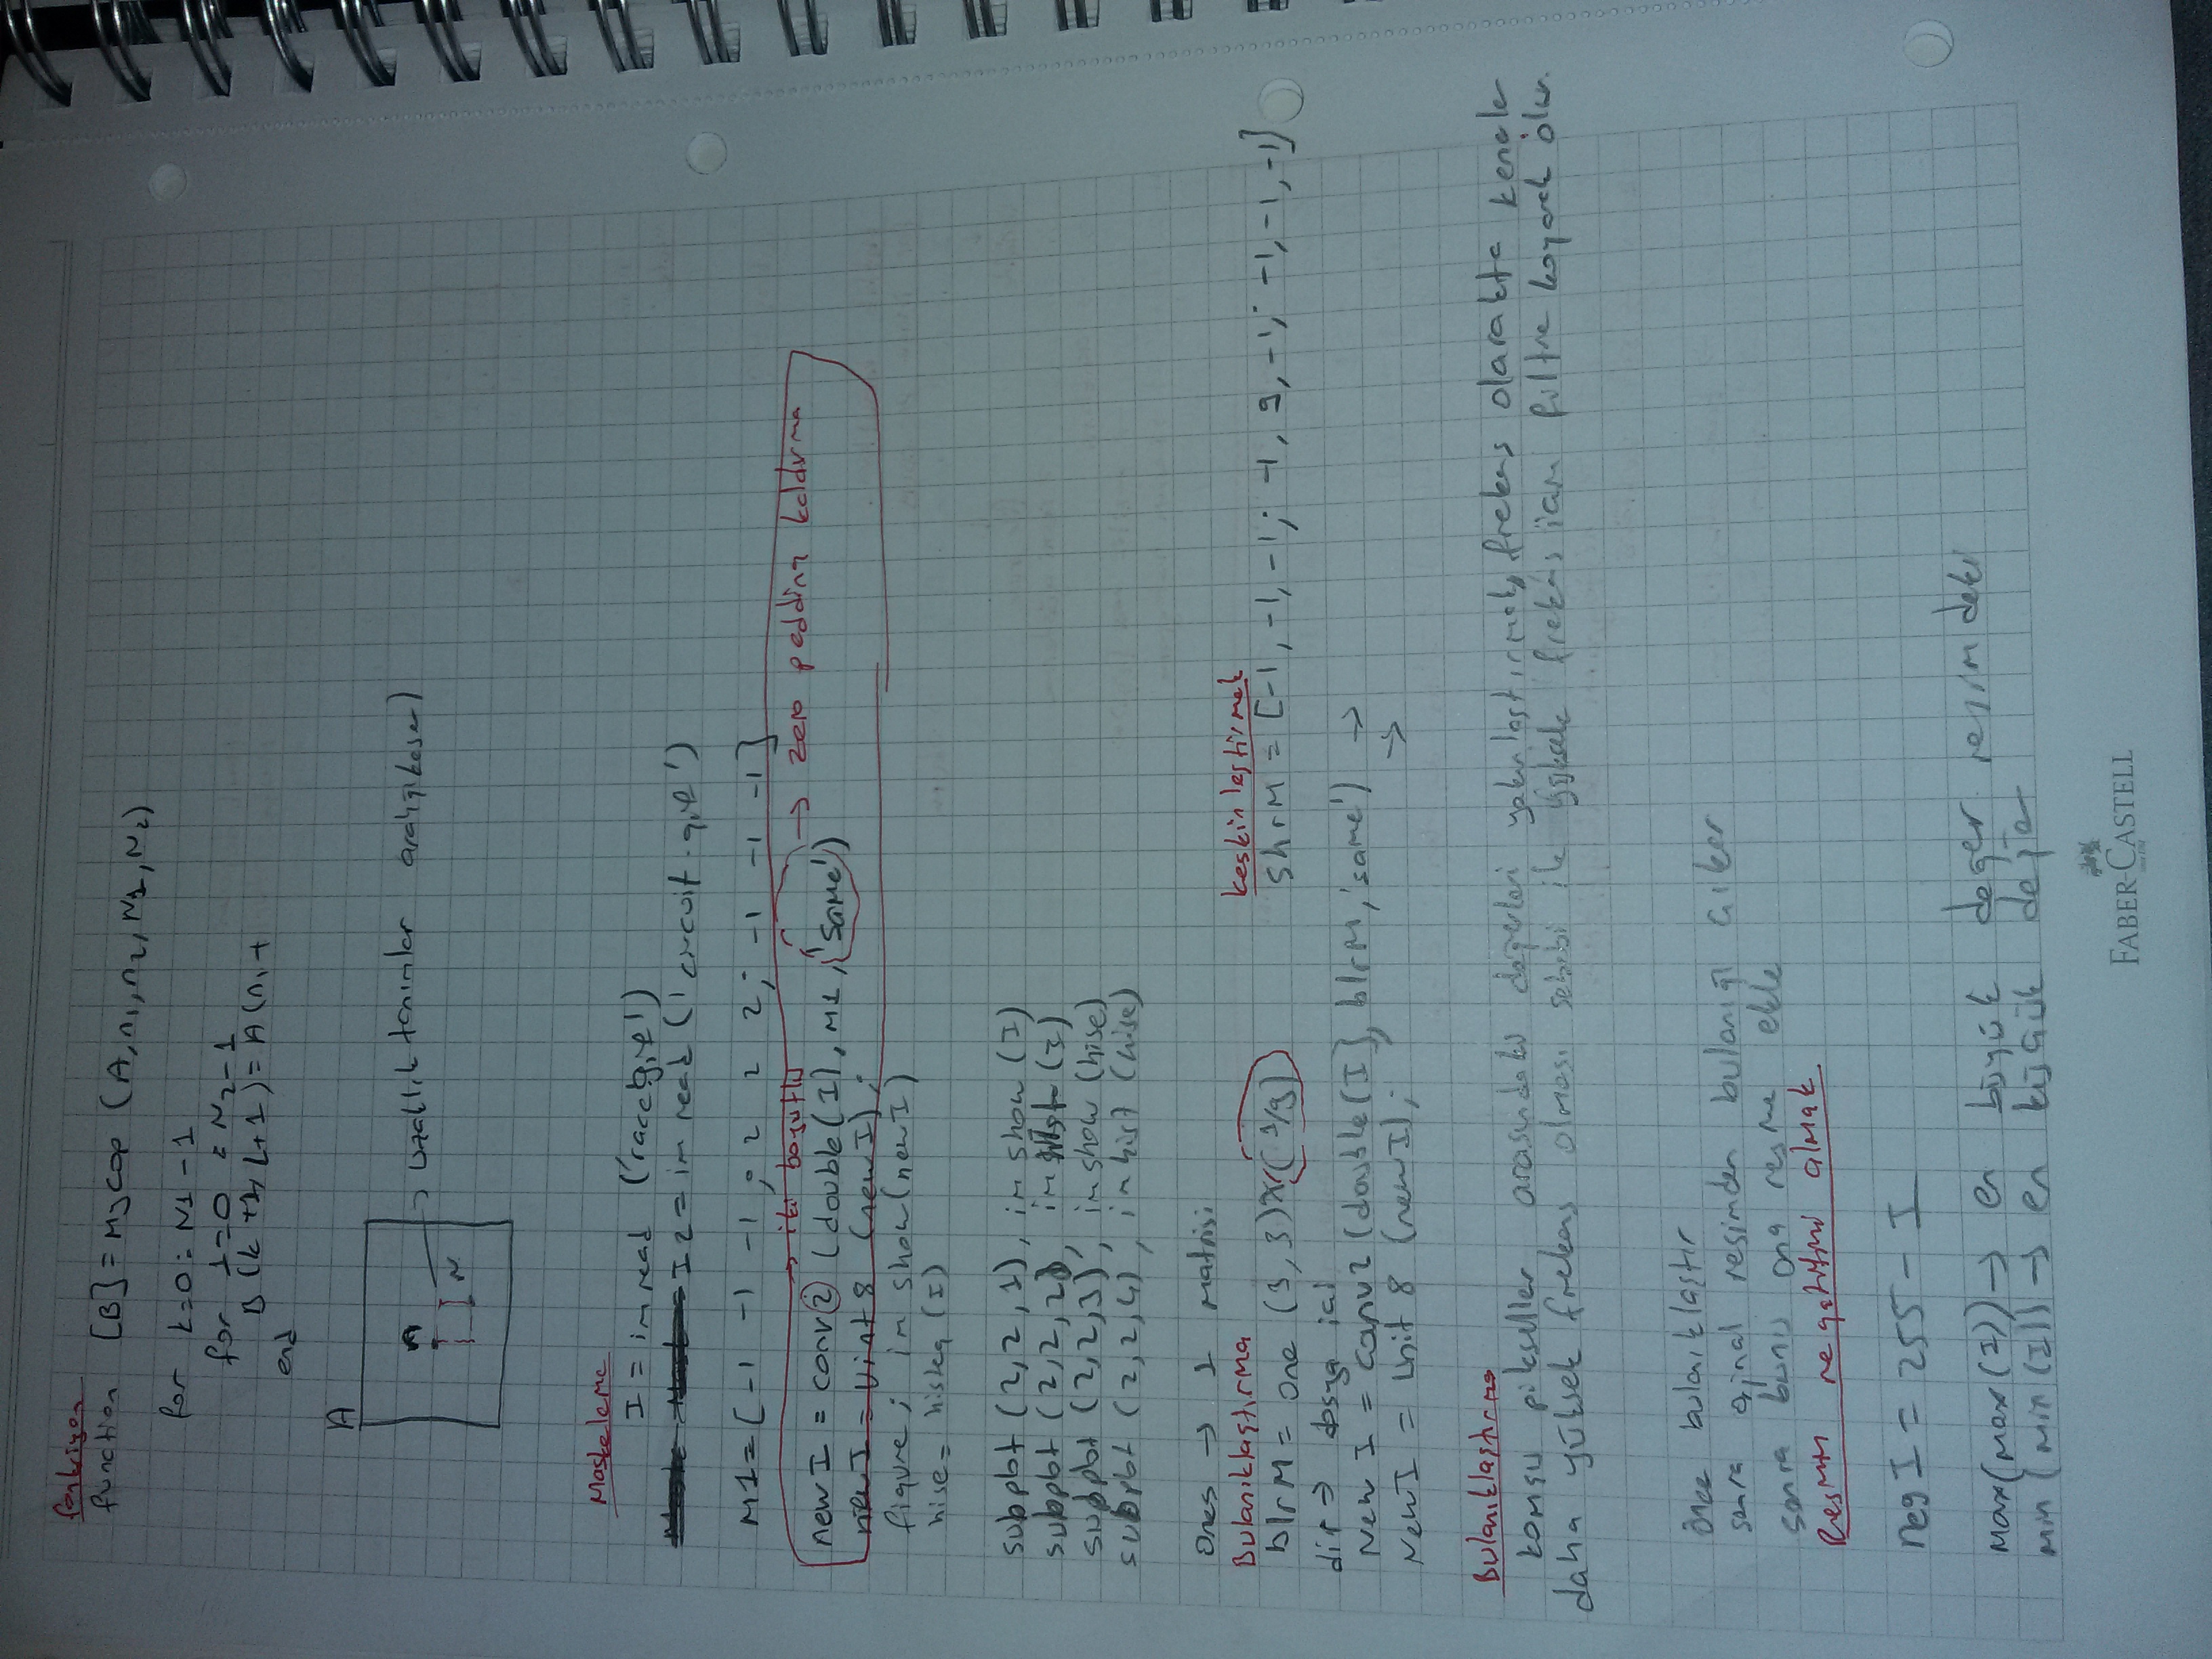 fonksiyon
function [B] = MyCop (A, n1, n2, N1, N2)
for k=0 : N1 - 1
for 1=0 : N2 - 1
B (k+1, L+1) = A (n1 +
end
A
n
N
→ uzaklık tanımlar aralığı keser)
Maskeleme
I = imread ('
I2 = imread ('circuit.gif')
M1 = [-1 -1 -1 ; 2 2 2 ; -1 -1 -1]
→ iki boyutlu
→ zero pedding kaldırma
new I = conv2 (double(I), M1, 'same')
new I = Uint 8 (new I);
figure; im show (new I)
hise = histeq (I)
subplot (2,2,1), im show (I)
subplot (2,2,2), im hist (I)
subplot (2,2,3), im show (hise)
subplot (2,2,4), im hist (hise)
Ones → 1 matrisi
Bulanıklaştırma
keskinleştirmek
blrM = one (3,3)*(1/9)
shrM = [-1, -1, -1; -1, 9, -1; -1, -1, -1]
dir →
New I = conv2 (double(I), blrM, 'same') →
New I = Unit 8 (new I); →
Bulanıklaştırma
komşu pikseller arasındaki değerleri yakınlaştırmak, frekans olarakta kenarlar
daha yüksek frekans olması sebebi ile yüksek frekans için filtre koyarak olur.
Önce bulanıklaştır
sonra orjnal resimden bulanığı çıkar
sonra bunu ana resme ekle
Resmin negatifini almak
neg I = 255 - I
max(max(I)) → en büyük değer resimdeki
min (min (I)) → en küçük değer
FABER-CASTELL
since 1761